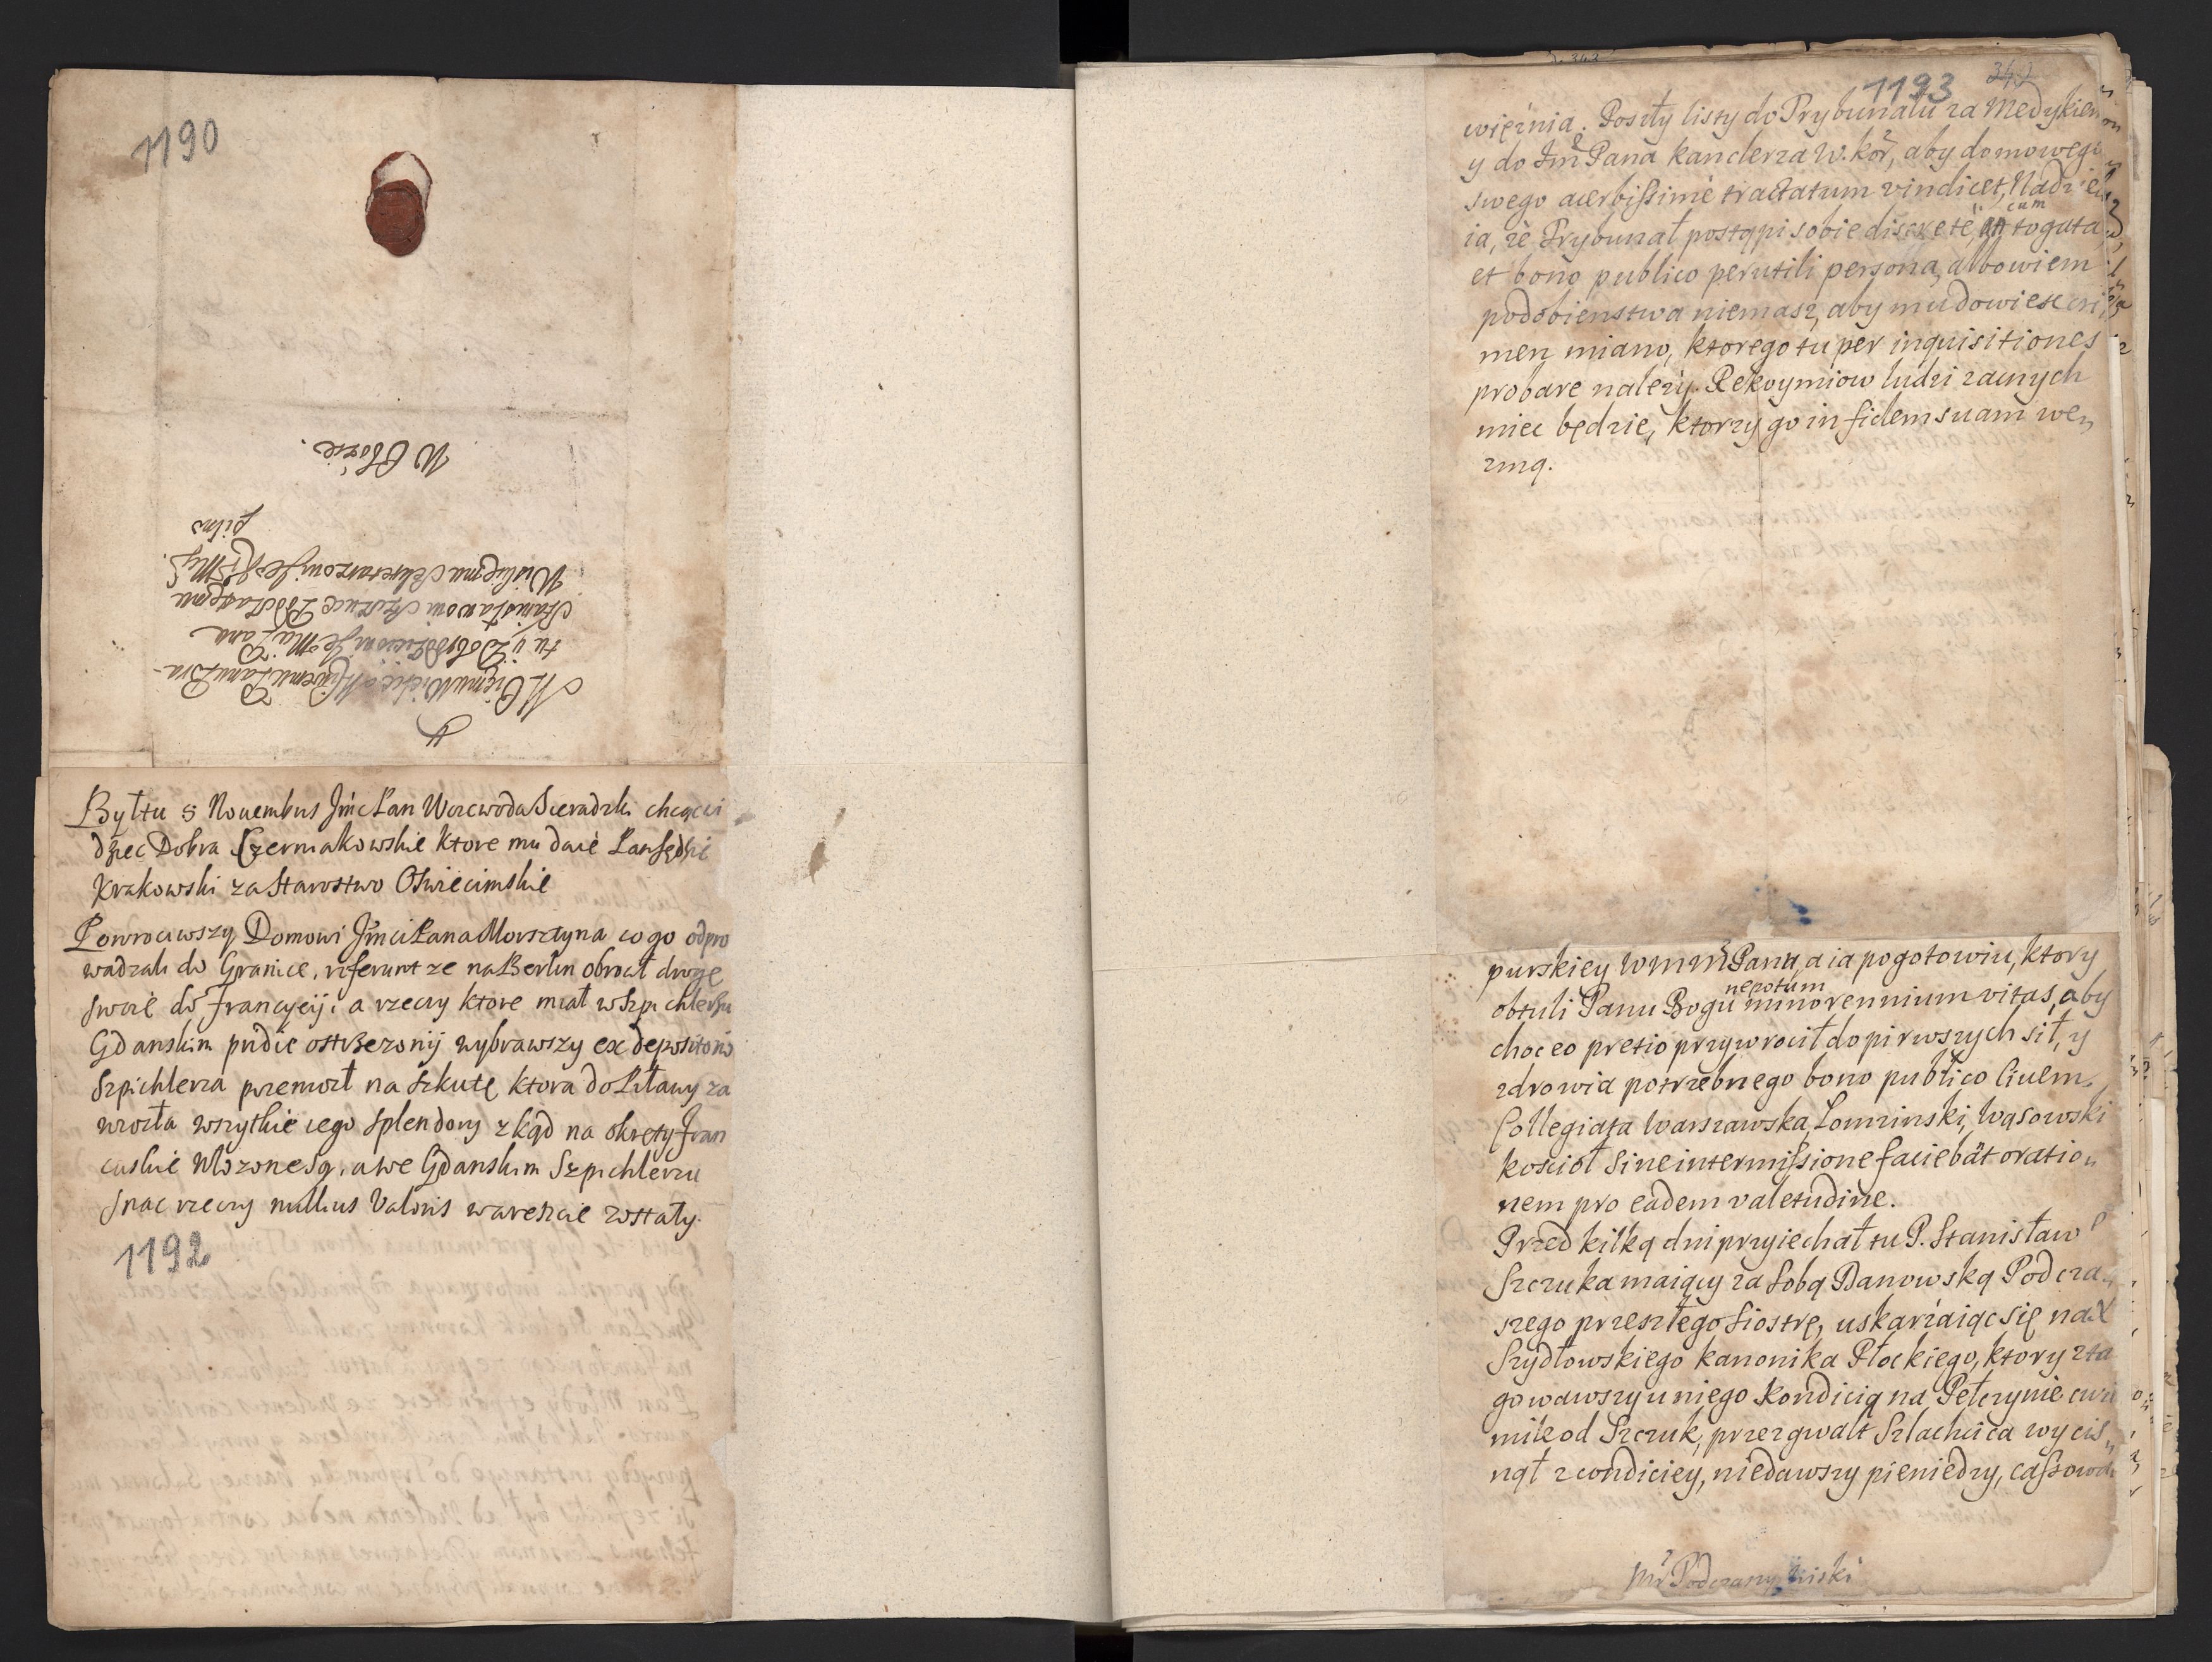 1190
A
M Ciemu Wielce Mśćiwemu Panu Bra-
tu i Dobrodzieiowi Je Mći Panu
Stanisławowi Szczuce Podstaręmu
Wieluḡna Sekretarzowi Je Kr Mći
pilno
W Obozie.
Był tu 5 Nouembris Jmć Pan Woiewoda Sieradzki chcąc wi
dzieć Dobra Czerniakowskie ktore mu daie Pan Sędzie
Krakowski za Starostwo Oswiecimskie
Powrociwszy Domowi Jmci Pana Morsztyna co go odpro
wadzali do Granice, referunt ze na Berlin obrocił drogę
swoię do francyeij, a rzeczy ktore miał w Szpichlerzu
Gdanskim pridie ostrzezonij wybrawszy ex depositorio
Szpichlerza przeniozł na szkutę ktora do Piławy za
wiozła wszytkie iego splendory zkąd na okręty fran
cuskie włozone są, a we Gdanskim Szpichlerzu
snac rzeczy nullius Valoris w areszcie zostały.
1192
1193
342
więznia. Poszły listy do Trybunału za Medykiem
y do Jmc Pana kanclerza W. kor, aby domowego
swego acerbissimè tractatum vindicet, Nadzie
ia, ze Trybunał postąpi sobie discretè, cum togata
et bono publico perutili persona, albowiem
podobienstwa niemasz, aby mu dowiesc cri,
men miano, ktorego tu per inquisitiones
probare nalezy. Rekoymiow ludzi zacnych
miec będzie, ktorzy go in fidem suam we,
zmą.
purskiey WMMPana, a ia pogotowiu, ktory
nepotum
obtuli Panu Bogu minorennium vitas, aby
choc eo pretio przywrocił do pirwszych sił, y
zdrowia potrzebnego bono publico Ciuem.
Collegiata Warszawska, Łomzinski, Wąsowski
kosciół sine intermissione faciebāt oratio,
nem pro eadem valetudine.
Przed kilką dni przyiechał tu P. Stanisław
Szczuka maiący za sobą Danowską Podcza,
szego przeszłego siostrę, uskarzaiąc się na X
Szydłowskiego kanonika Płockiego, ktory zta
gowawszy u niego kondicią na Pełczynie cwi
mile od Szczuk, przez gwałt Szlachcica wycis,
nął z condiciey, niedawszy pieniedzy, cassowa